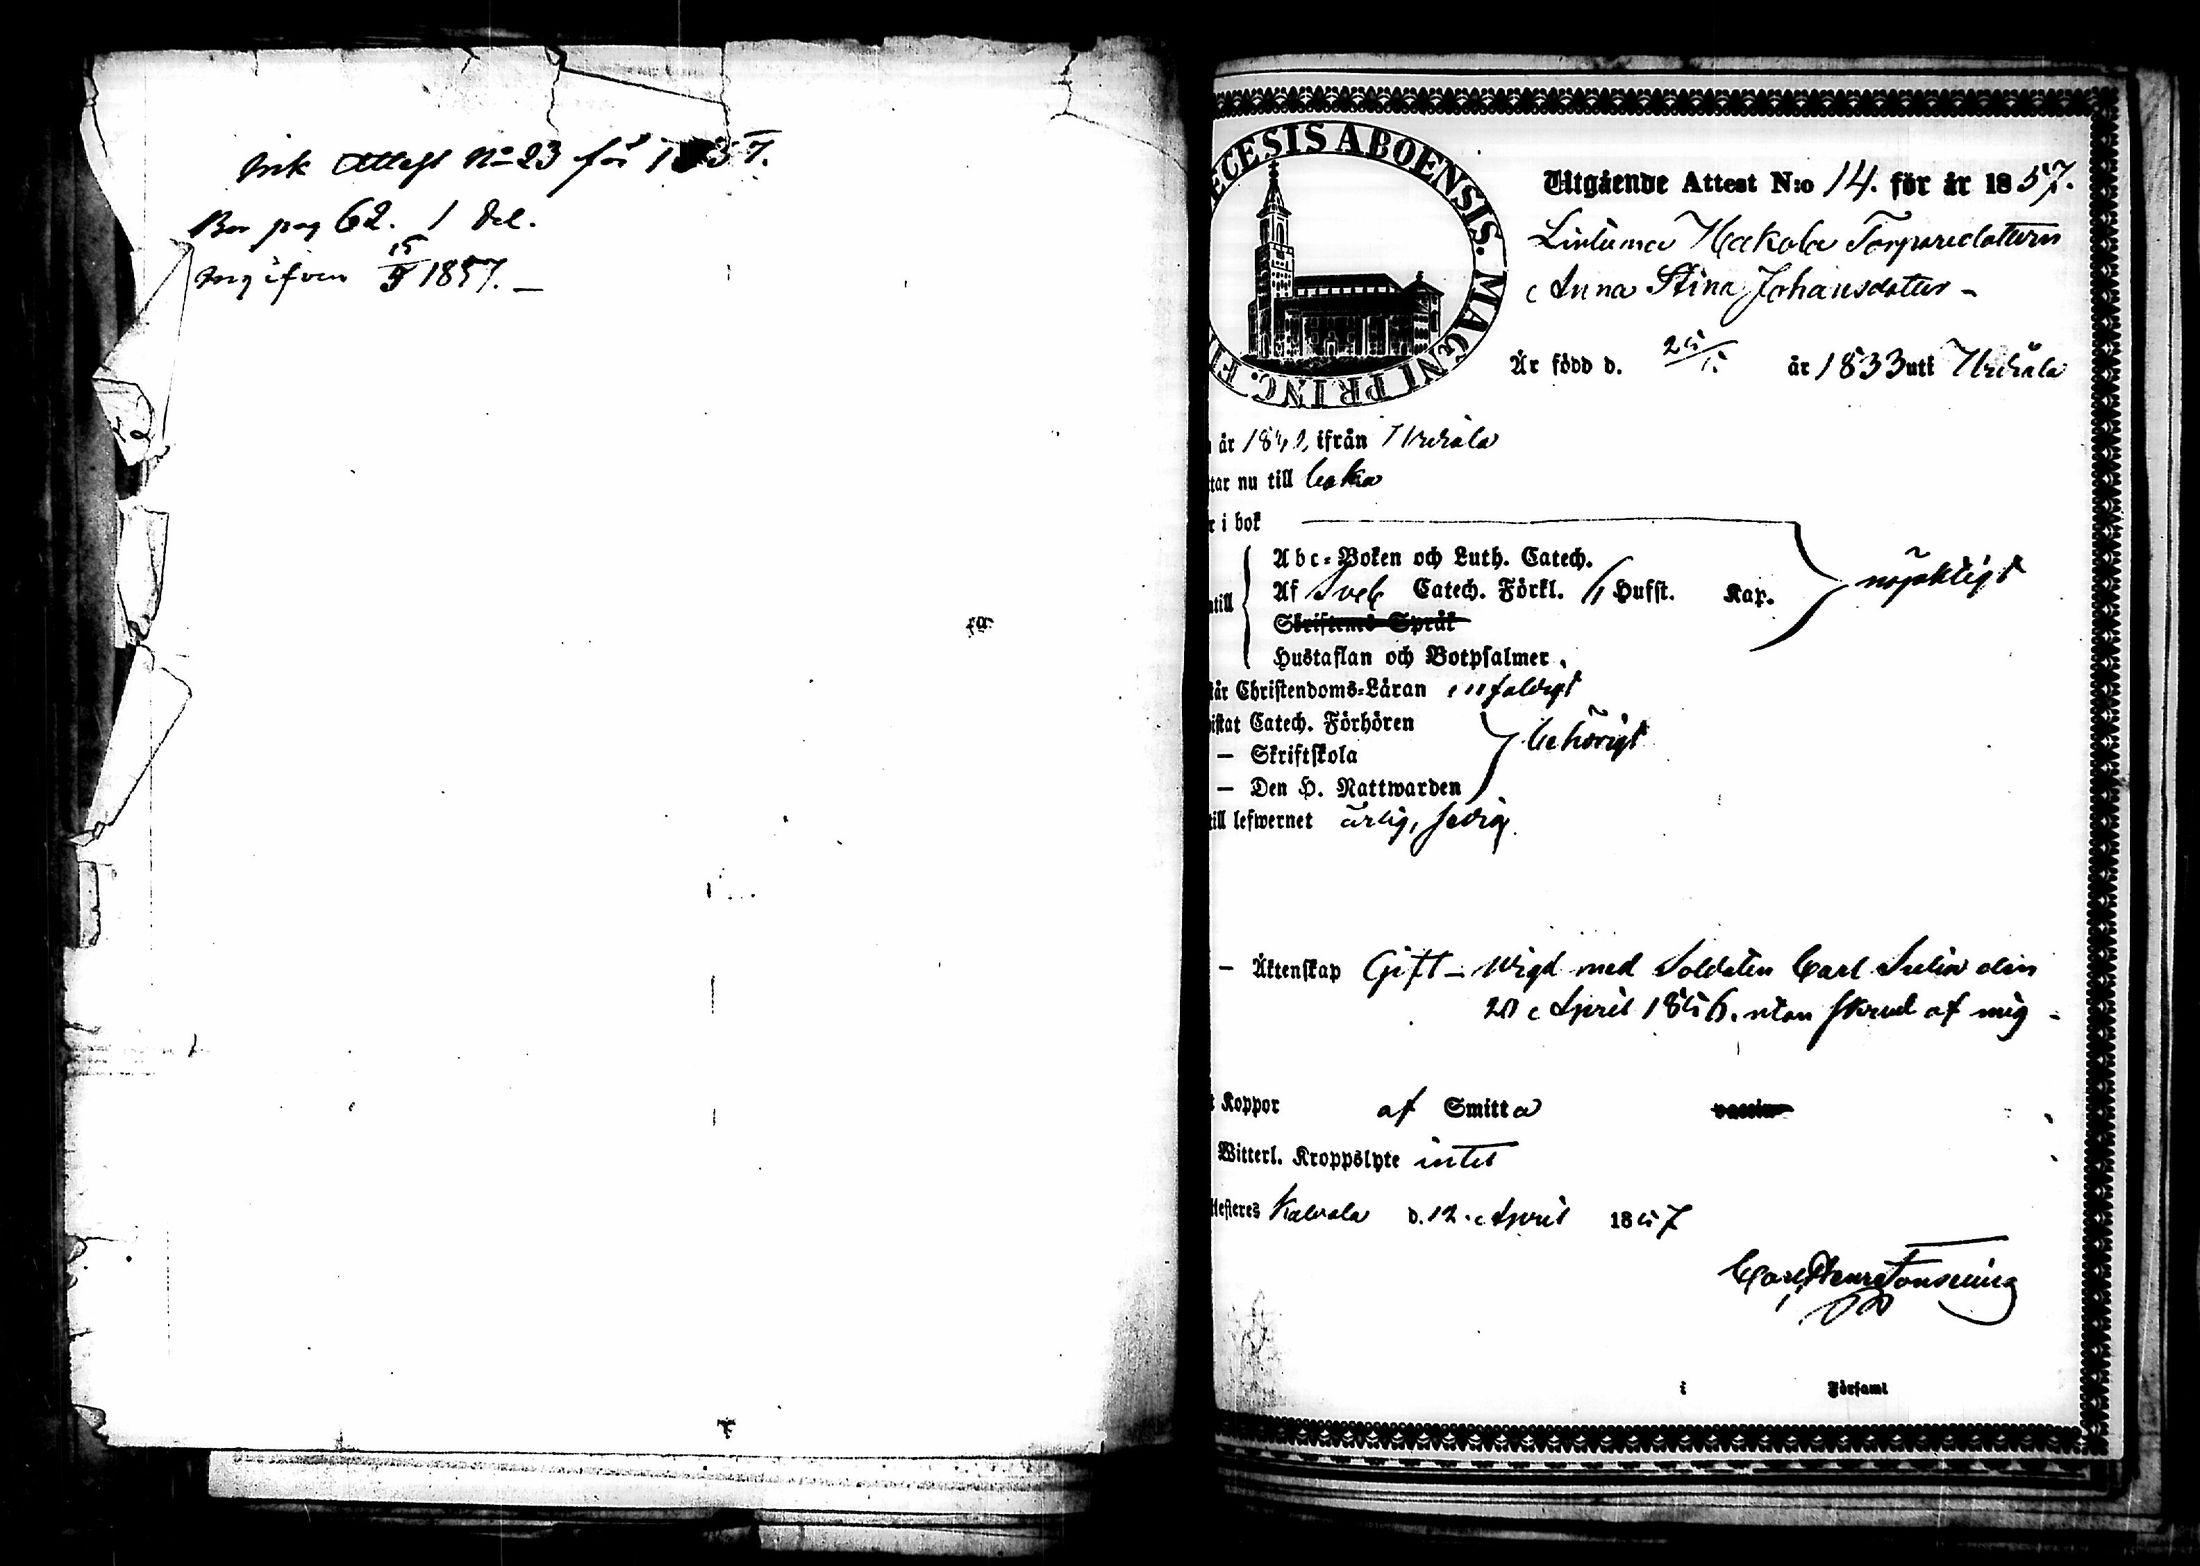 Ink Attest No 23 för 1857.
Bor pag 62. 1 Del.
Ingifven 15/5 1857. –
ECESIS ABOENSIS. MAGNI PRINC. FI
Utgående Attest N:o 14. för år 1857.
Hakola Torparedottern
Anna Stina Johansdotter –
Är född d. 25/5. år 1833 uti Urdiala
år 1841, ifrån Urdiala
tar nu till
r i bok
Abc-Boken och Luth. Catech.
Af Sveb Catech. Förkl. 6 Hufst. Kap. nöjaktigt
till
Skriftenes Språk
Hustaflan och Botpsalmer,
tår Christendoms-Läran enfaldigt
istat Catech. Förhören
– Skriftskola behörigt
– Den H. Nattwarden
till lefwernet ärlig, sedig.
– Äktenskap Gift – Wigd med Soldaten Carl den
20 April 1856. utan skrud af mig –
t Koppor af Smitta vaccin
Witterl. Kroppslyte intet
ttesteres Kalvola d. 12. April 1857
Carl Henr
i Församl